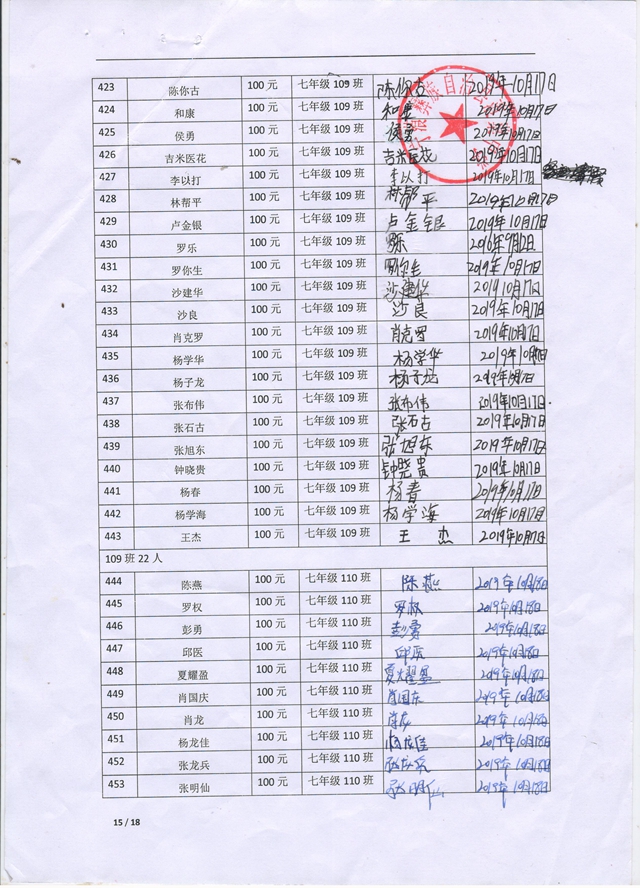 423 陈你古 100元 七年级109班 陈你古 2019年10月17日
424 和康 100元 七年级109班 和康 2019年10月17日
425 侯勇 100元 七年级109班 侯勇 2019年10月17日
426 吉米医花 100元 七年级109班 吉米医花 2019年10月17日
427 李以打 100元 七年级109班 李以打 2019年10月17日
428 林帮平 100元 七年级109班 林帮平 2019年10月17日
429 卢金银 100元 七年级109班 卢金银 2019年10月17日
430 罗乐 100元 七年级109班 罗乐
431 罗你生 100元 七年级109班 罗你生 2019年10月17日
432 沙建华 100元 七年级109班 沙建华 2019年10月17日
433 沙良 100元 七年级109班 沙良 2019年10月17日
434 肖克罗 100元 七年级109班 肖克罗 2019年10月17日
435 杨学华 100元 七年级109班 杨学华 2019年10月17日
436 杨子龙 100元 七年级109班 杨子龙
437 张布伟 100元 七年级109班 张布伟 2019年10月17日
438 张石古 100元 七年级109班 张石古 2019年10月17日
439 张旭东 100元 七年级109班 张旭东 2019年10月17日
440 钟晓贵 100元 七年级109班 钟晓贵 2019年10月17日
441 杨春 100元 七年级109班 杨春 2019年10月17日
442 杨学海 100元 七年级109班 杨学海 2019年10月17日
443 王杰 100元 七年级109班 王杰 2019年10月17日
109班22人
444 陈燕 100元 七年级110班 陈燕 2019年10月18日
445 罗权 100元 七年级110班 罗权 2019年10月18日
446 彭勇 100元 七年级110班 彭勇 2019年10月18日
447 邱医 100元 七年级110班 邱医 2019年10月18日
448 夏耀盈 100元 七年级110班 夏耀盈 2019年10月18日
449 肖国庆 100元 七年级110班 肖国庆 2019年10月18日
450 肖龙 100元 七年级110班 肖龙 2019年10月18日
451 杨龙佳 100元 七年级110班 杨龙佳 2019年10月18日
452 张龙兵 100元 七年级110班 张龙兵 2019年10月18日
453 张明仙 100元 七年级110班 张明仙 2019年10月18日
15 / 18